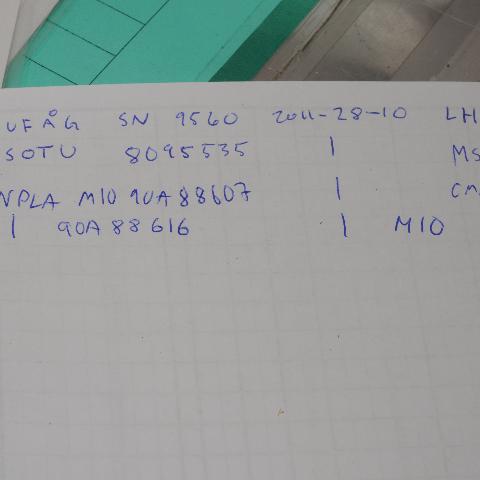 UFÅG SN 9560 2011-28-10 LH
SOTU 8095535 | MS
NPLA M10 90A88607 | CM
| 90A88616 | M10